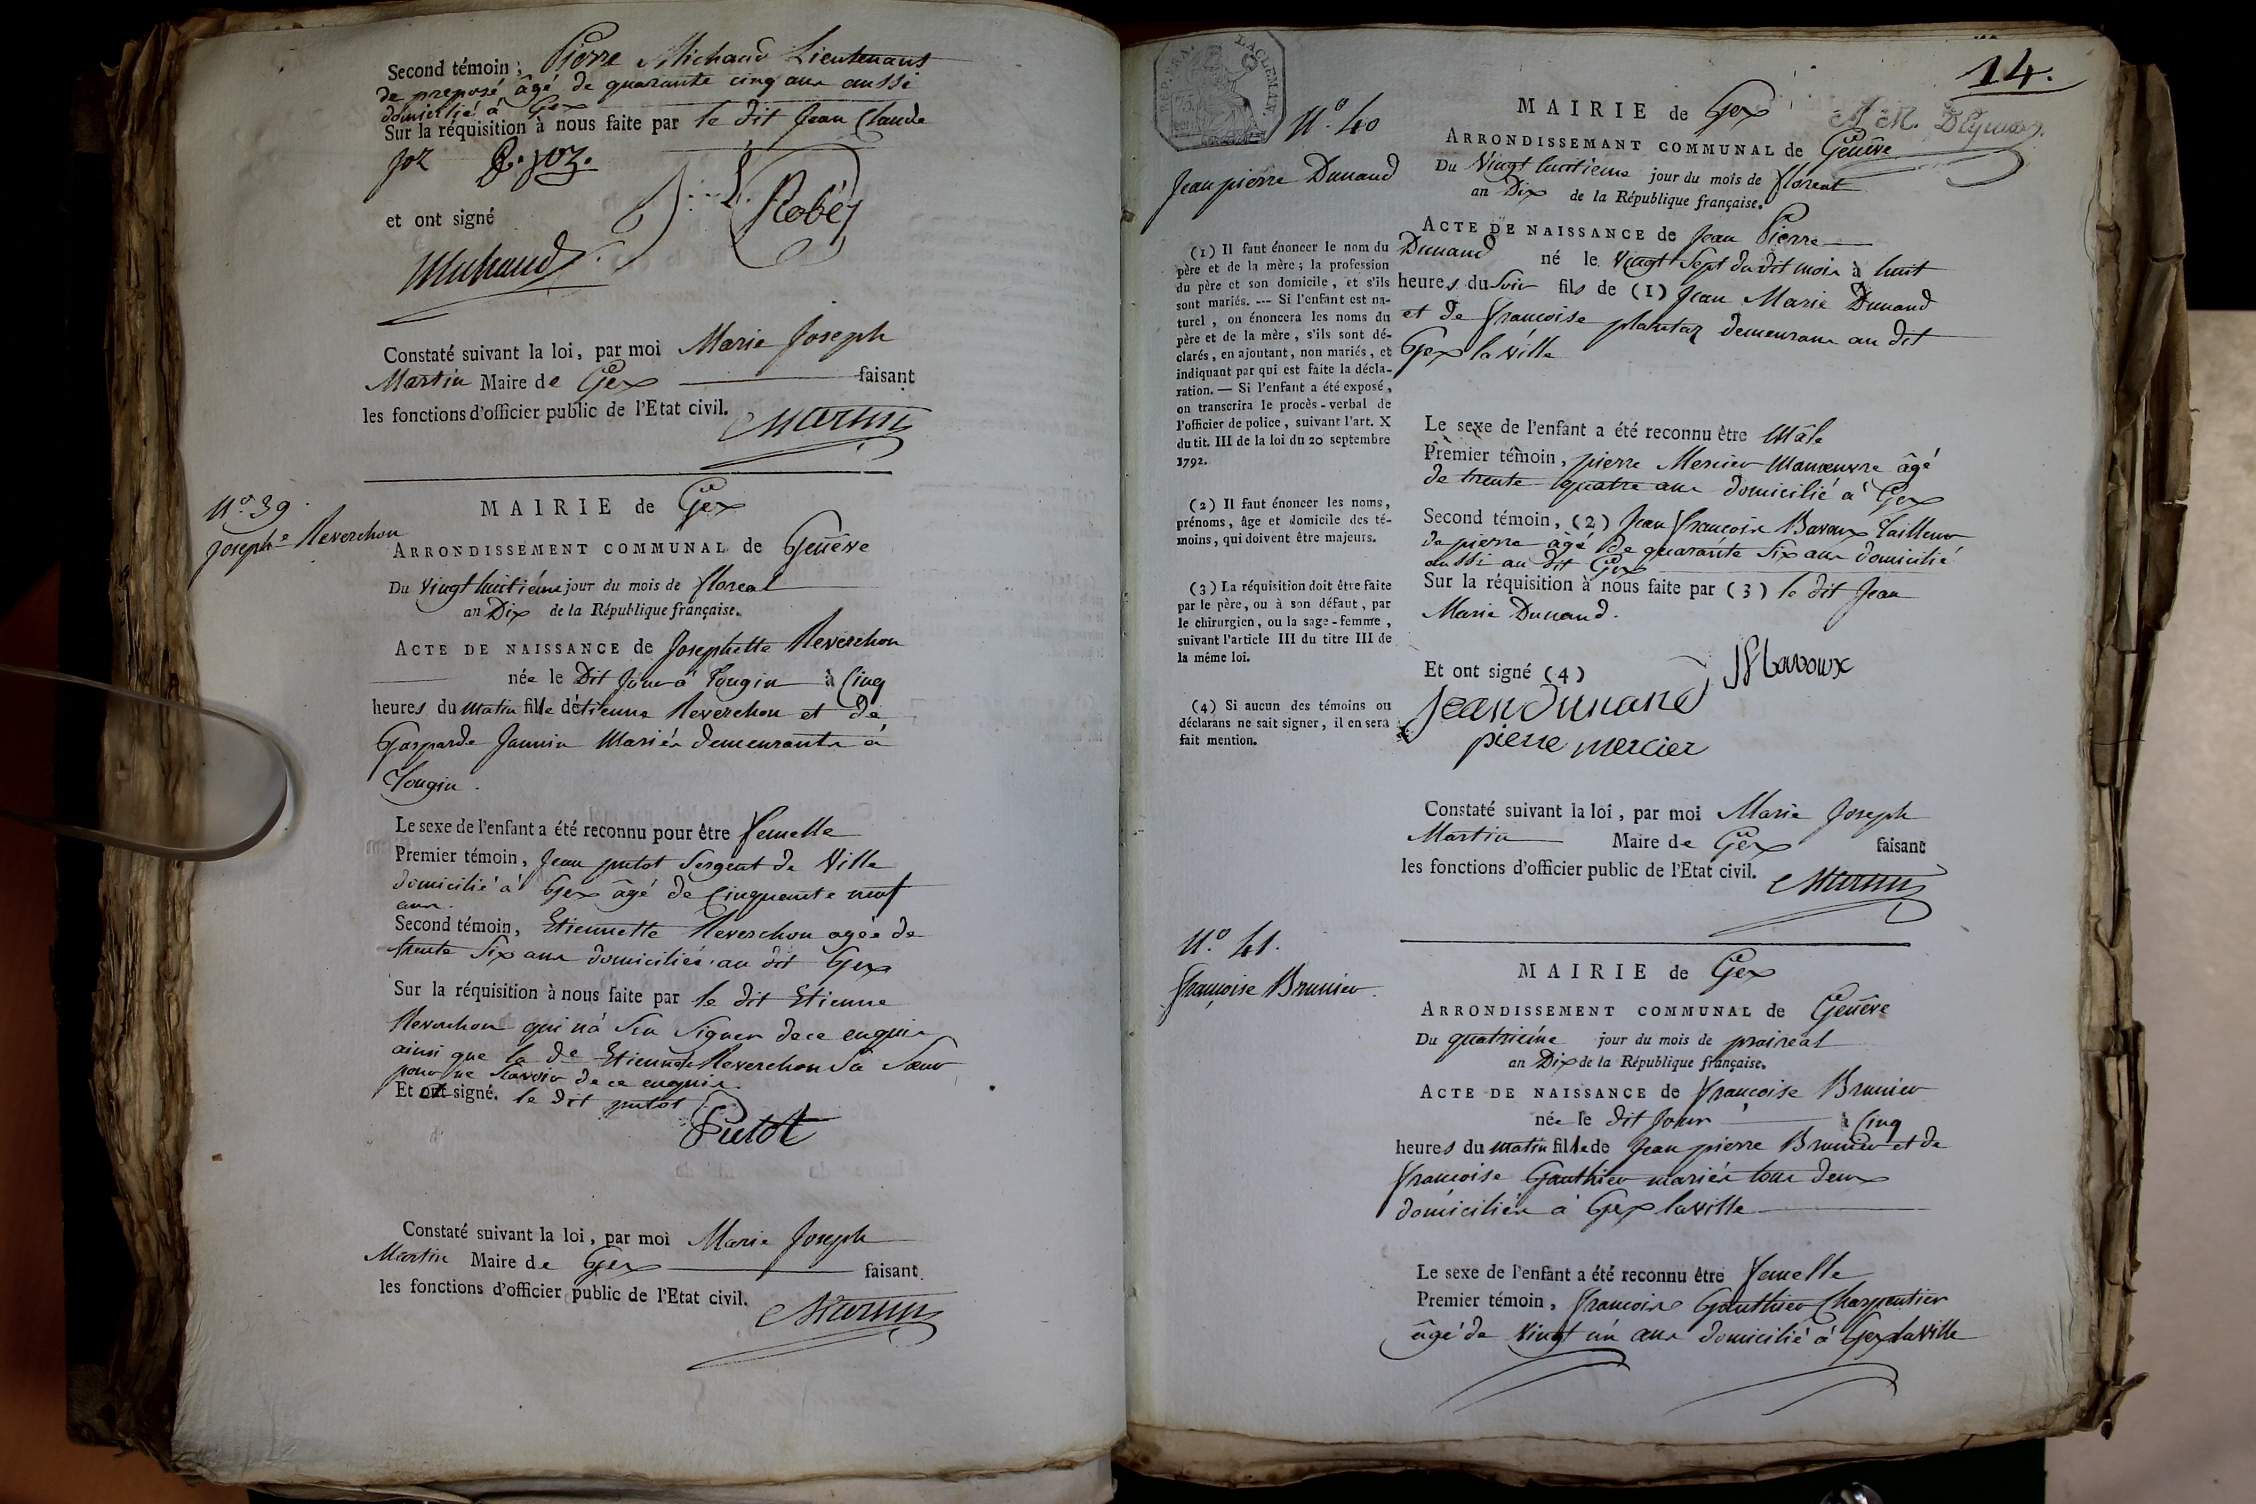 Second témoin, Pierre Michaud Lieutenant
de preposé âgé de quarante cinq ans aussi
domicilié à Gex
Sur la réquisition à nous faite par le dit Jean Claude
Joz J. joz.
et ont signé
Robéz
Michaud
Constaté suivant la loi, par moi Marie Joseph
Martin Maire de Gex faisant
les fonctions d'officier public de l'Etat civil. Martin
N.º 39.
Joseph.e Reverchon
MAIRIE de Gex
ARRONDISSEMENT COMMUNAL de Genêve
Du vingt huitiéme jour du mois de floreal
an Dix de la République française.
ACTE DE NAISSANCE de Josephette Reverchon
née le Dit Jour à Tougin à Cinq
heures du matin fille détienne Reverchon et de
Gasparde Jannin Mariés demeurants à
Tougin.
Le sexe de l'enfant a été reconnu pour être femelle
Premier témoin, Jean putot Sergent de Ville
domicilié à Gex âgé de Cinquante neuf
ans.
Second témoin, Etiennette Reverchon agée de
trente Six ans domiciliés au dit Gex
Sur la réquisition à nous faite par le dit Etienne
Reverchon qui n'a Su Signer de ce enquis
ainsi que la de Etiennette Reverchon Sa Sœur
pour ne Savoir de ce enquise.
Et ont signé. le dit putot
Putot
Constaté suivant la loi, par moi Marie Joseph
Martin Maire de Gex faisant
les fonctions d'officier public de l'Etat civil.
Martin
14.
REP. FRA.
75.
N.º 40
Jean pierre Dunand
MAIRIE de Gex
ARRONDISSEMANT COMMUNAL de Genêve
Du Vingt huitieme jour du mois de floreal
an Dix de la République française.
ACTE DE NAISSANCE de Jean Pierre
Dunand né le vingt Sept du dit mois à huit
heures du Soir fils de (1) Jean Marie Dunand
et de françoise plantaz demeurans au dit
Gex la ville
(1) Il faut énoncer le nom du
père et de la mère ; la profession
du père et son domicile, et s'ils
sont mariés. --- Si l'enfant est na-
turel, on énoncera les noms du
père et de la mère, s'ils sont dé-
clarés, en ajoutant, non mariés, et
indiquant par qui est faite la décla-
ration. — Si l'enfant a été exposé,
on transcrira le procès-verbal de
l'officier de police, suivant l'art. X
du tit. III de la loi du 20 septembre
1792.
(2) Il faut énoncer les noms,
prénoms, âge et domicile des té-
moins, qui doivent être majeurs.
(3) La réquisition doit être faite
par le père, ou à son défaut, par
le chirurgien, ou la sage-femme,
suivant l'article III du titre III de
la même loi.
(4) Si aucun des témoins ou
déclarans ne sait signer, il en sera
fait mention.
Le sexe de l'enfant a été reconnu être Mâle
Prémier témoin, pierre Mercier Manœuvre âgé
de trente quatre ans domicilié à Gex
Second témoin, (2) Jean françois Bavoux Tailleur
de pierre âgé de quarante Six ans domicilié
aussi au dit Gex
Sur la réquisition à nous faite par (3) le dit Jean
Marie Dunand.
Et ont signé (4) Jf bavoux
jean dunand
pierre mercier
Constaté suivant la loi, par moi Marie Joseph
Martin Maire de Gex faisant
les fonctions d'officier public de l'Etat civil. Martin
N.º 41.
françoise Brunier
MAIRIE de Gex
ARRONDISSEMENT COMMUNAL de Genêve
Du quatriéme jour du mois de prairéal
an Dix de la République française.
ACTE DE NAISSANCE de françoise Brunier
née le dit Jour à Cinq
heures du matin fille de Jean pierre Brunier et de
françoise Gauthier mariés tous deux
domiciliés à Gex la ville
Le sexe de l'enfant a été reconnu être femelle
Premier témoin, françois Gauthier Charpentier
âgé de Vingt un ans domicilié à Gex la Ville